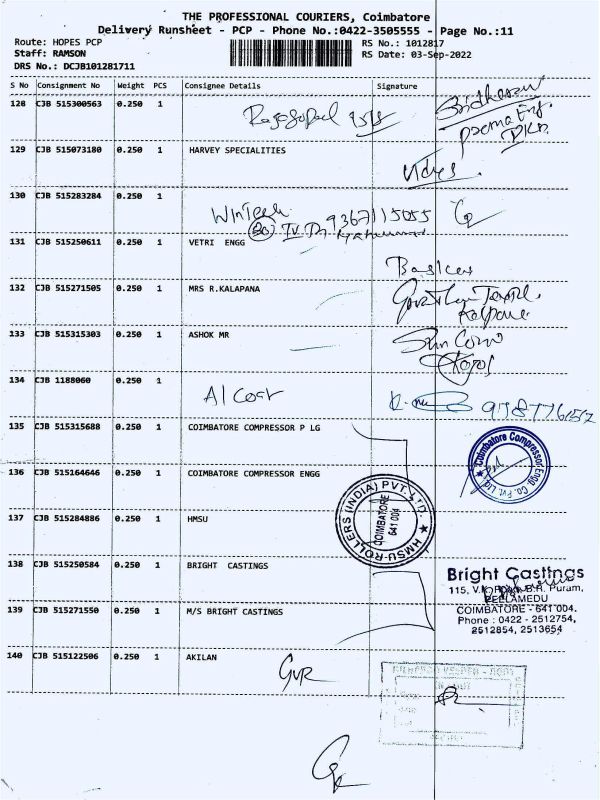 THE PROFESSIONAL COURIERS, Coimbatore
Delivery Runsheet - PCP - Phone No.:0422-3505555 - Page No.:11
Route: HOPES PCP RS No.: 1012817
Staff: RAMSON RS Date: 03-Sep-2022
DRS No.: DCJB101281711
S No Consignment No Weight PCS Consignee Details Signature
128 CJB 515300563 0.250 1 Rajagopal
129 CJB 515073180 0.250 1 HARVEY SPECIALITIES
130 CJB 515283284 0.250 1
Wintech 9367115055
131 CJB 515250611 0.250 1 VETRI ENGG
132 CJB 515271505 0.250 1 MRS R.KALAPANA
133 CJB 515315303 0.250 1 ASHOK MR
134 CJB 1188060 0.250 1
135 CJB 515315688 0.250 1 COIMBATORE COMPRESSOR P LG
Coimbatore Compressor Engg. Co. Pvt. Ltd.
136 CJB 515164646 0.250 1 COIMBATORE COMPRESSOR ENGG
137 CJB 515284886 0.250 1 HMSU
HMSU-ROLLERS (INDIA) PVT. LTD.
COIMBATORE
641 004
138 CJB 515250584 0.250 1 BRIGHT CASTINGS
Bright Castings
115, Puram,
PEELAMEDU
COIMBATORE - 641 004.
Phone : 0422 - 2512754,
2512854, 2513654
139 CJB 515271550 0.250 1 M/S BRIGHT CASTINGS
140 CJB 515122506 0.250 1 AKILAN
GVR